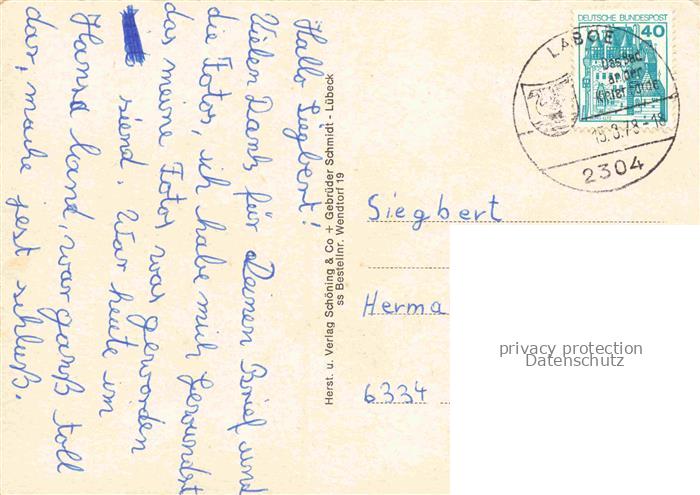 Hallo Siegbert!
Vielen Dank für Deinen Brief und
die Fotos, ich habe mich gewundert
das meine Fotos was geworden
siend. War heute im
Hansa land, war ganß toll
dar, mache jest schluß.
Herst. u. Verlag Schöning & Co + Gebrüder Schmidt - Lübeck
ss Bestellnr. Wendtorf 19
DEUTSCHE BUNDESPOST
40
LABOE
Das Bad
an der
Kieler Förde
15.8.78-18
2304
Siegbert
Herma
6334
privacy protection
Datenschutz